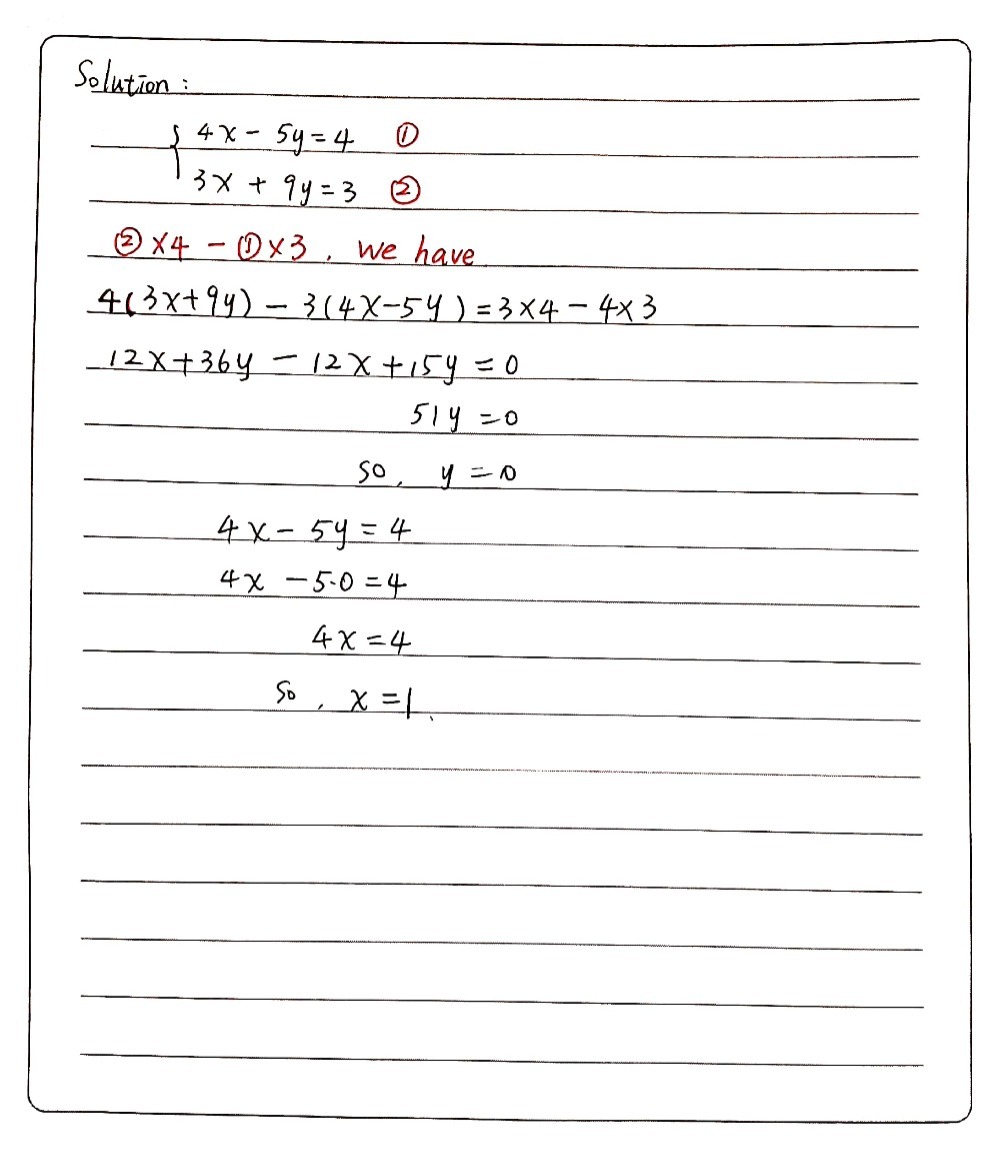 Solution:
4x - 5y = 4 ①
3x + 9y = 3 ②
② x4 - ① x3, we have
4(3x+9y) - 3(4x-5y) = 3x4 - 4x3
12x+36y - 12x+15y = 0
51y = 0
so, y = 0
4x - 5y = 4
4x - 5·0 = 4
4x = 4
so, x = 1.